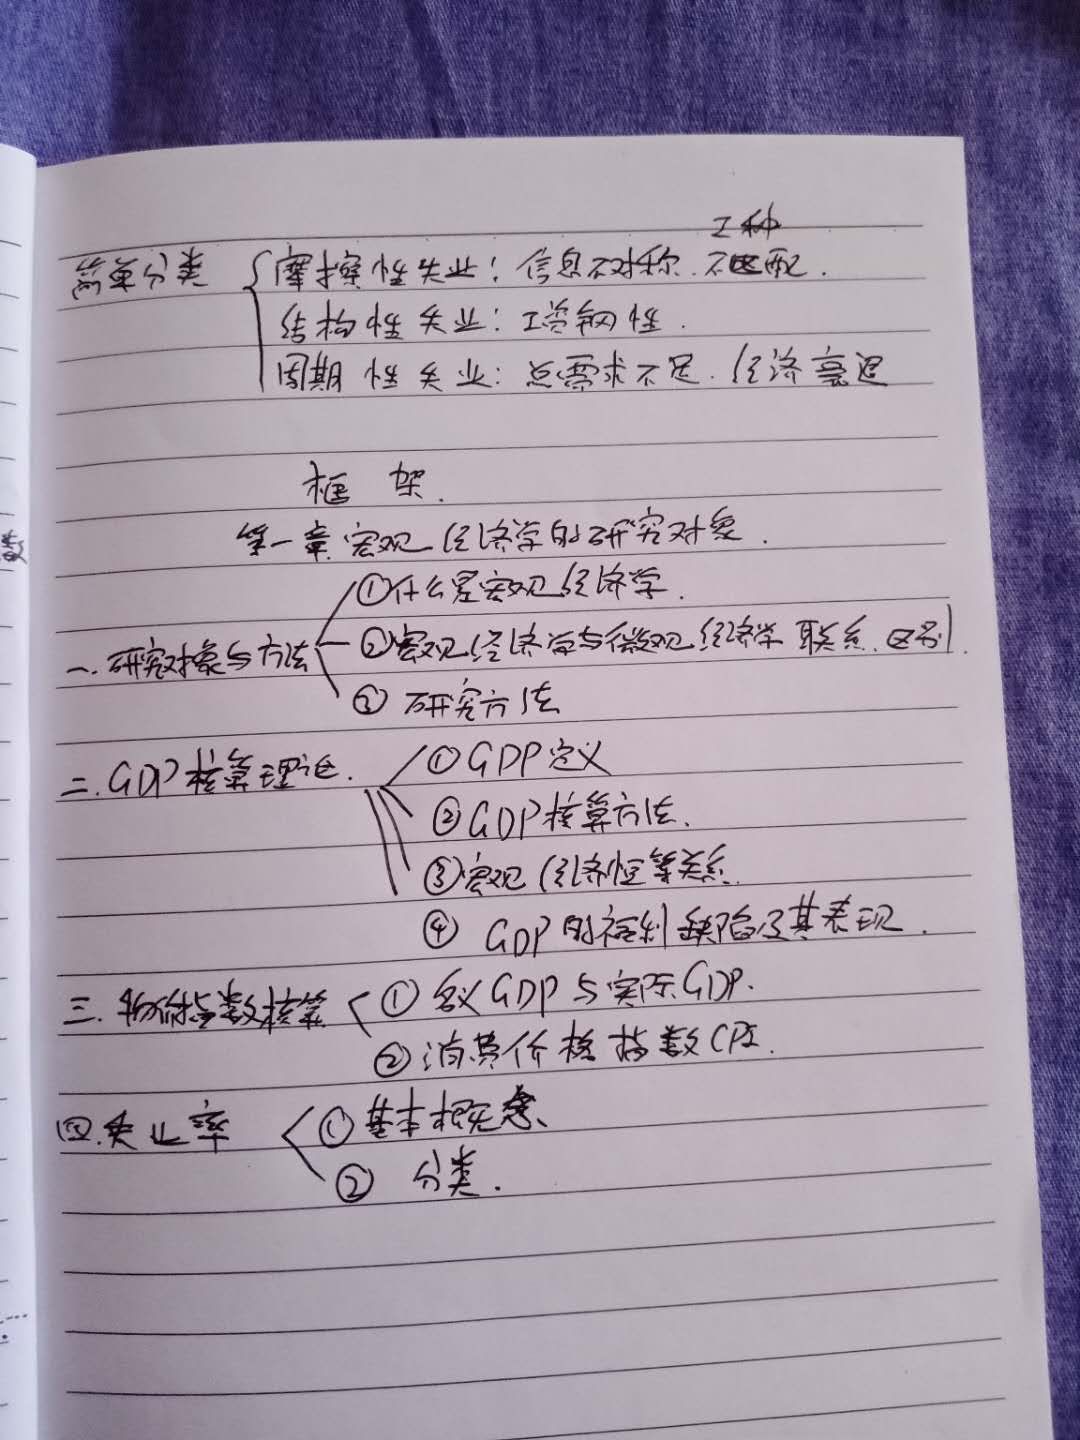 工种
简单分类 摩擦性失业：信息不对称.不匹配.
结构性失业：工资钢性.
周期性失业：总需求不足.经济衰退
框架.
第一章.宏观经济学的研究对象.
①什么是宏观经济学.
一.研究对象与方法 ②宏观经济学与微观经济学联系.区别.
③研究方法
二.GDP核算理论. ①GDP定义
②GDP核算方法.
③宏观经济恒等关系.
④GDP的福利缺陷及其表现.
三.物价指数核算 ①名义GDP与实际GDP.
②消费价格指数CPI.
四.失业率 ①基本概念
②分类.